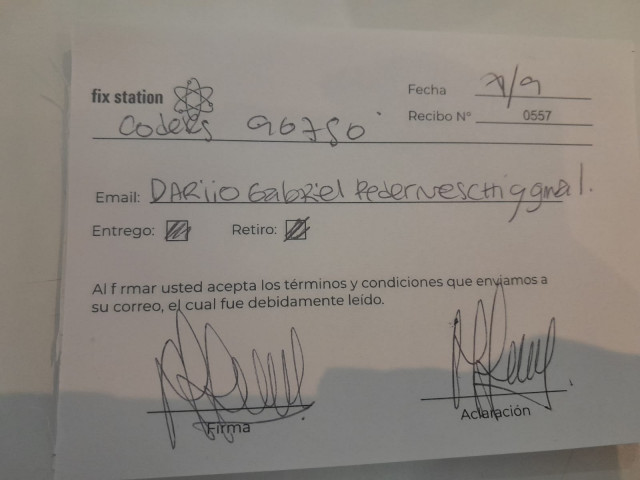 fix station
Fecha 7/9
Recibo N° 0557
Coders 90750
Email: DARiio Gabriel Pederneschi @ gmail.
Entrego: Retiro:
Al f rmar usted acepta los términos y condiciones que enviamos a
su correo, el cual fue debidamente leído.
Firma Aclaración